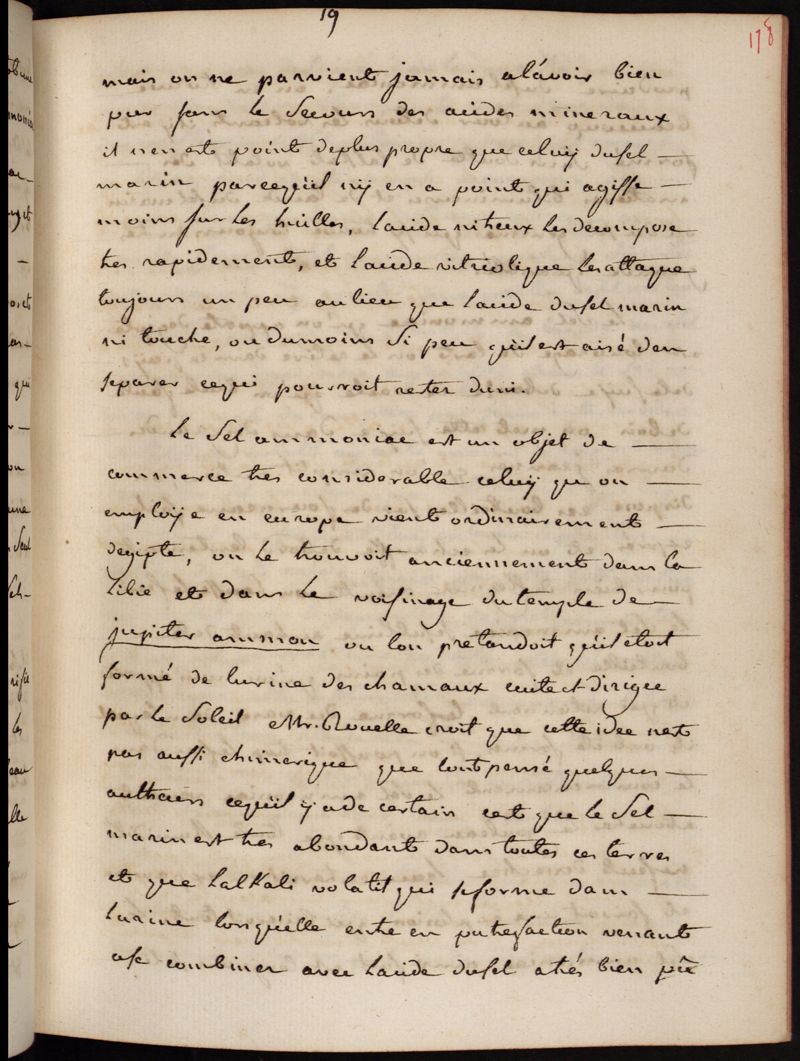 19
178
mais on ne parvient jamais alávoir bien
pur sans le secours des acides mineraux
il nen est point deplus propre que celuy dusel —
marin parcequil ny en a point qui agisse —
moins sur les huilles, lacide nitreux les decompose
tres rapidement, et lacide vitriolique les attaque
toujours un peu aulieu que lacide dusel marin
ni touche, ou dumoins si peu quil est aisé den
separer cequi pourroit rester duni.
Le sel ammoniac est un objet de —
commerce tres considerable celuy qu on —
employe en europe vient ordinairement —
degipte, on le trouvoit anciennement dans la
libie et dans le voisinage du temple de —
jupiter ammon ou lon pretandoit quil etoit
formé de lurine des chamaux cuite et dirigee
par le soleil Mr. Rouelle croit que cette idee nest
pas aussi chimerique que lont pensé quelques —
autheurs cequil y a de certain cest que le sel —
marin est tres abondant dans toutes ces terres
et que lalkali volatil qui se forme dans —
lurine lorsquelle entre en putrefaction venant
ase combiner avec lacide dusel a trés bien pû